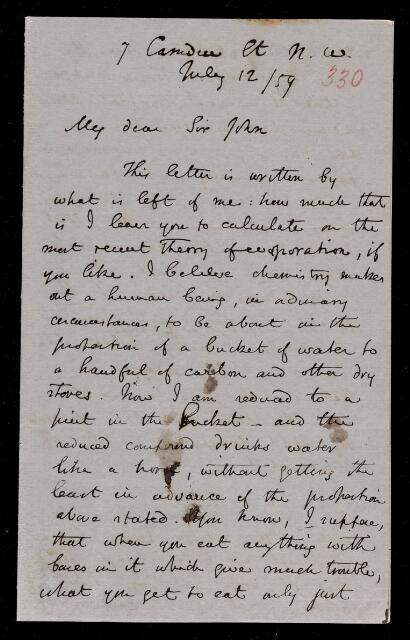 7 Camden St N. W.
July 12/59
330
My dear Sir John
This letter is written by
what is left of me: how much that
is I leave you to calculate on the
most recent theory of evaporation, if
you like. I believe chemistry makes
out a human being, in ordinary
circumstances, to be about in the
proportion of a bucket of water to
a handful of carbon and other dry
stoves. Now I am reduced to a
pint in the bucket - and the
reduced compound drinks water
like a horse, without getting the
least in advance of the proportion
above stated. You know, I suppose,
that when you eat anything with
bones in it which give much trouble,
what you get to eat only just